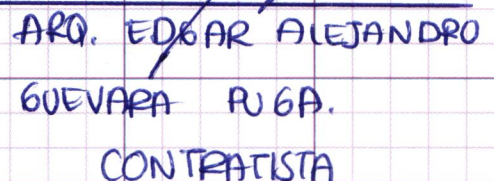 ARQ. EDGAR ALEJANDRO
GUEVARA PUGA.
CONTRATISTA